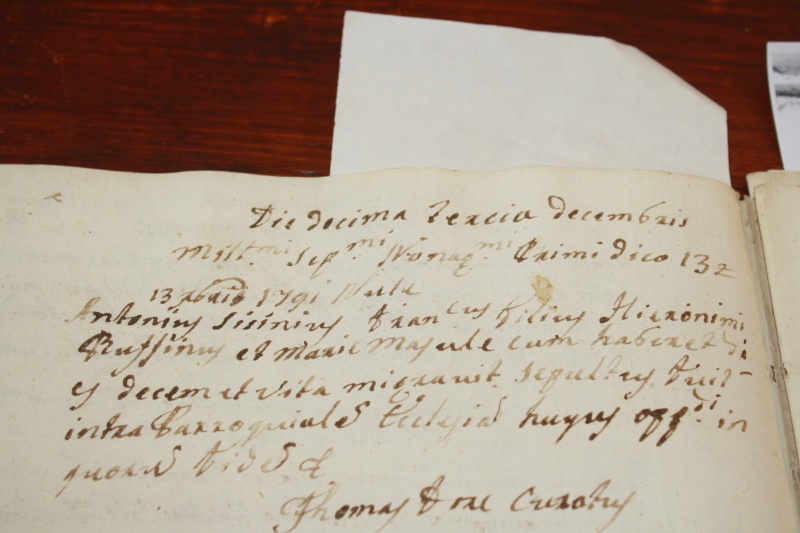 Die decima tercia decembris
Mill.mi Sep.mi Nonag.mi Primi dico 13
13 Xbris 1791 Nule
Antonius Sisinius Fran.cus Filius Hieronimi
Ruffinus et Marie Masule cum haberet di
es decem et vita migravit sepultus fuit
intra Parroquiale Ecclesia huyus opp.di in
quoru fide &
Thomas Fore Curatus